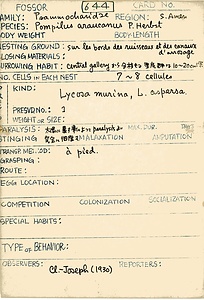 FOSSOR 644 CARD NO.
FAMILY: Psammocharidae REGION: S. Amer.
SPECIES: Pompilus araucanus P. Herbst
BODY WEIGHT BODY-LENGTH
NESTING GROUND: sur les bords des ruisseaux et des canaux
CLOSING MATERIALS: d'arrosage
BURROWING HABIT: central gallery 10~20cm
NO. CELLS IN EACH NEST 7~8 cellules
KIND: Lycosa murina, L. aspersa.
PREY IND. NO. :
WEIGHT OR SIZE:
PARALYSIS: MAX. DUR.
STINGING MALAXATION AMPUTATION
TRANSP. METHOD: à pied.
GRASPING:
ROUTE:
EGG LOCATION:
COMPETITION COLONIZATION SOCIALIZATION
SPECIAL HABITS:
TYPE OF BEHAVIOR:
OBSERVERS: Cl-Joseph (1930) REPORTERS: